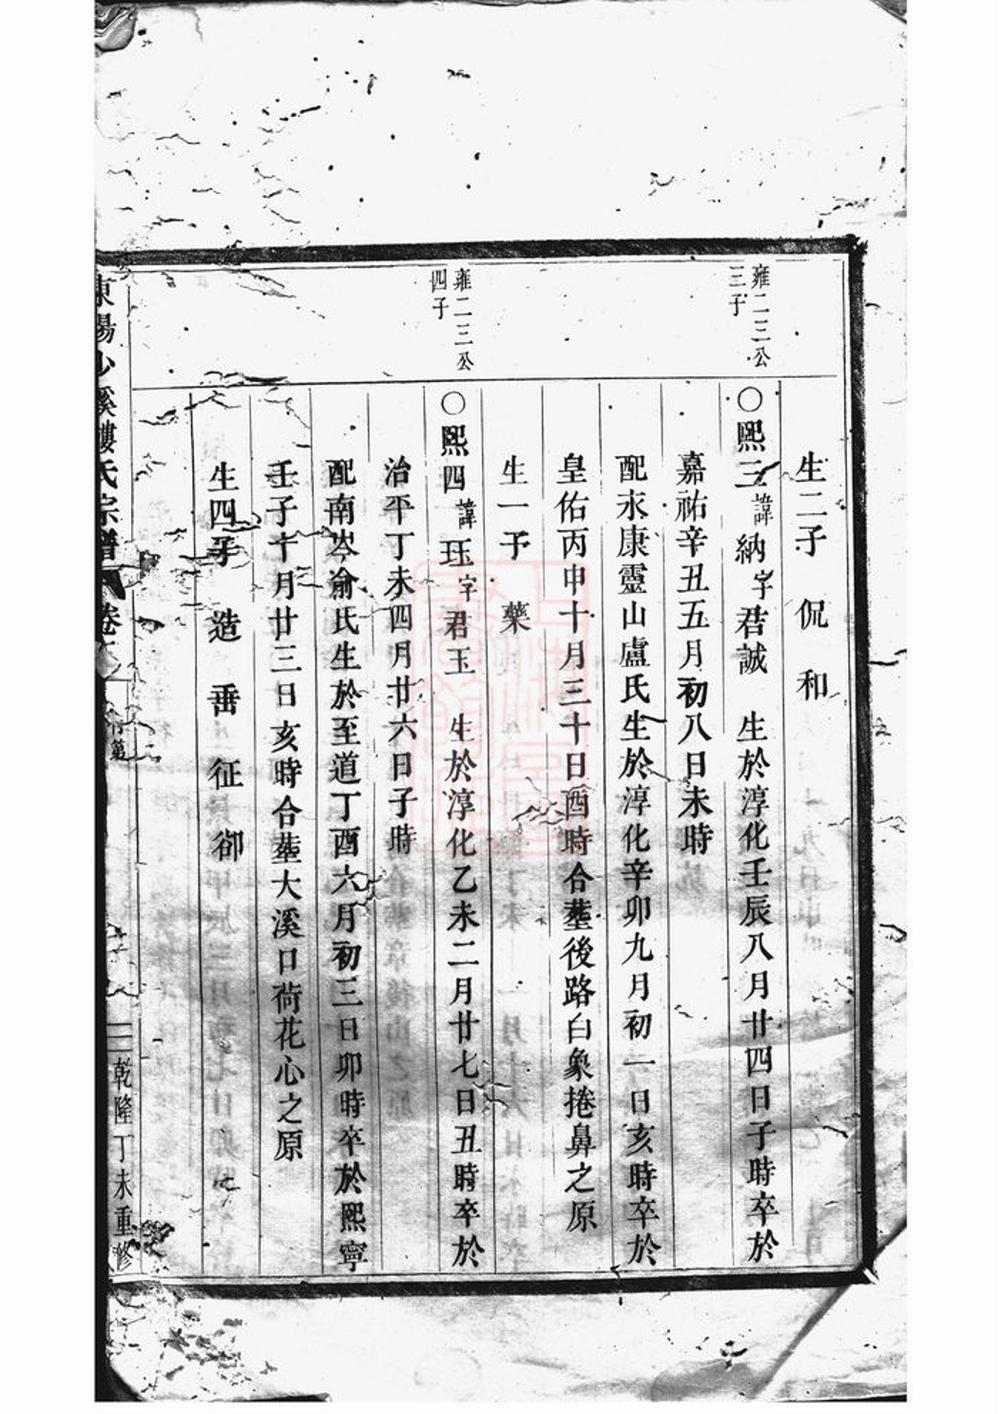 生二子 侃 和
雍二三公
三子
○熙三諱納字君誠 生於淳化壬辰八月廿四日子時卒於
嘉祐辛丑五月初八日未時
配永康靈山盧氏生於淳化辛卯九月初一日亥時卒於
皇佑丙申十月三十日酉時合塟後路白象捲鼻之原
生一子 藥
雍二三公
四子
○熙四諱珏字君玉 生於淳化乙未二月廿七日丑時卒於
治平丁未四月廿六日子時
配南岑俞氏生於至道丁酉六月初三日卯時卒於熙寧
壬子十月廿三日亥時合塟大溪口荷花心之原
生四子 造 垂 征 卻
東陽沙溪樓氏宗譜 卷 行第 乾隆丁未重修